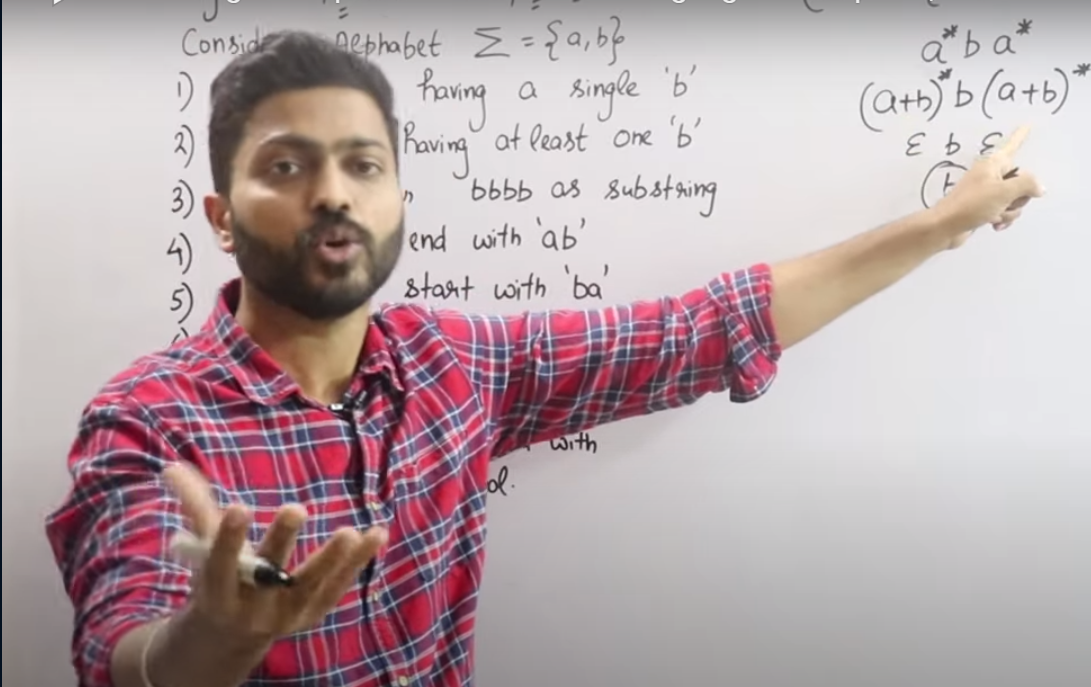 Alphabet Σ = {a,b}
1) having a single 'b'
2) having at least one 'b'
3) " bbbb as substring
4) end with 'ab'
5) start with 'ba'
with
a* b a*
(a+b)* b (a+b)*
ε b ε